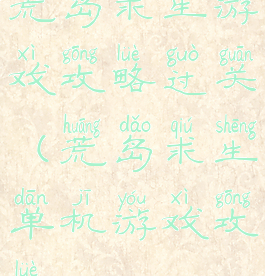 荒岛求生游
xì gōng lüè guò guān
戏攻略过关
huāng dǎo qiú shēng
（荒岛求生
dān jī yóu xì gōng
单机游戏攻
lüè